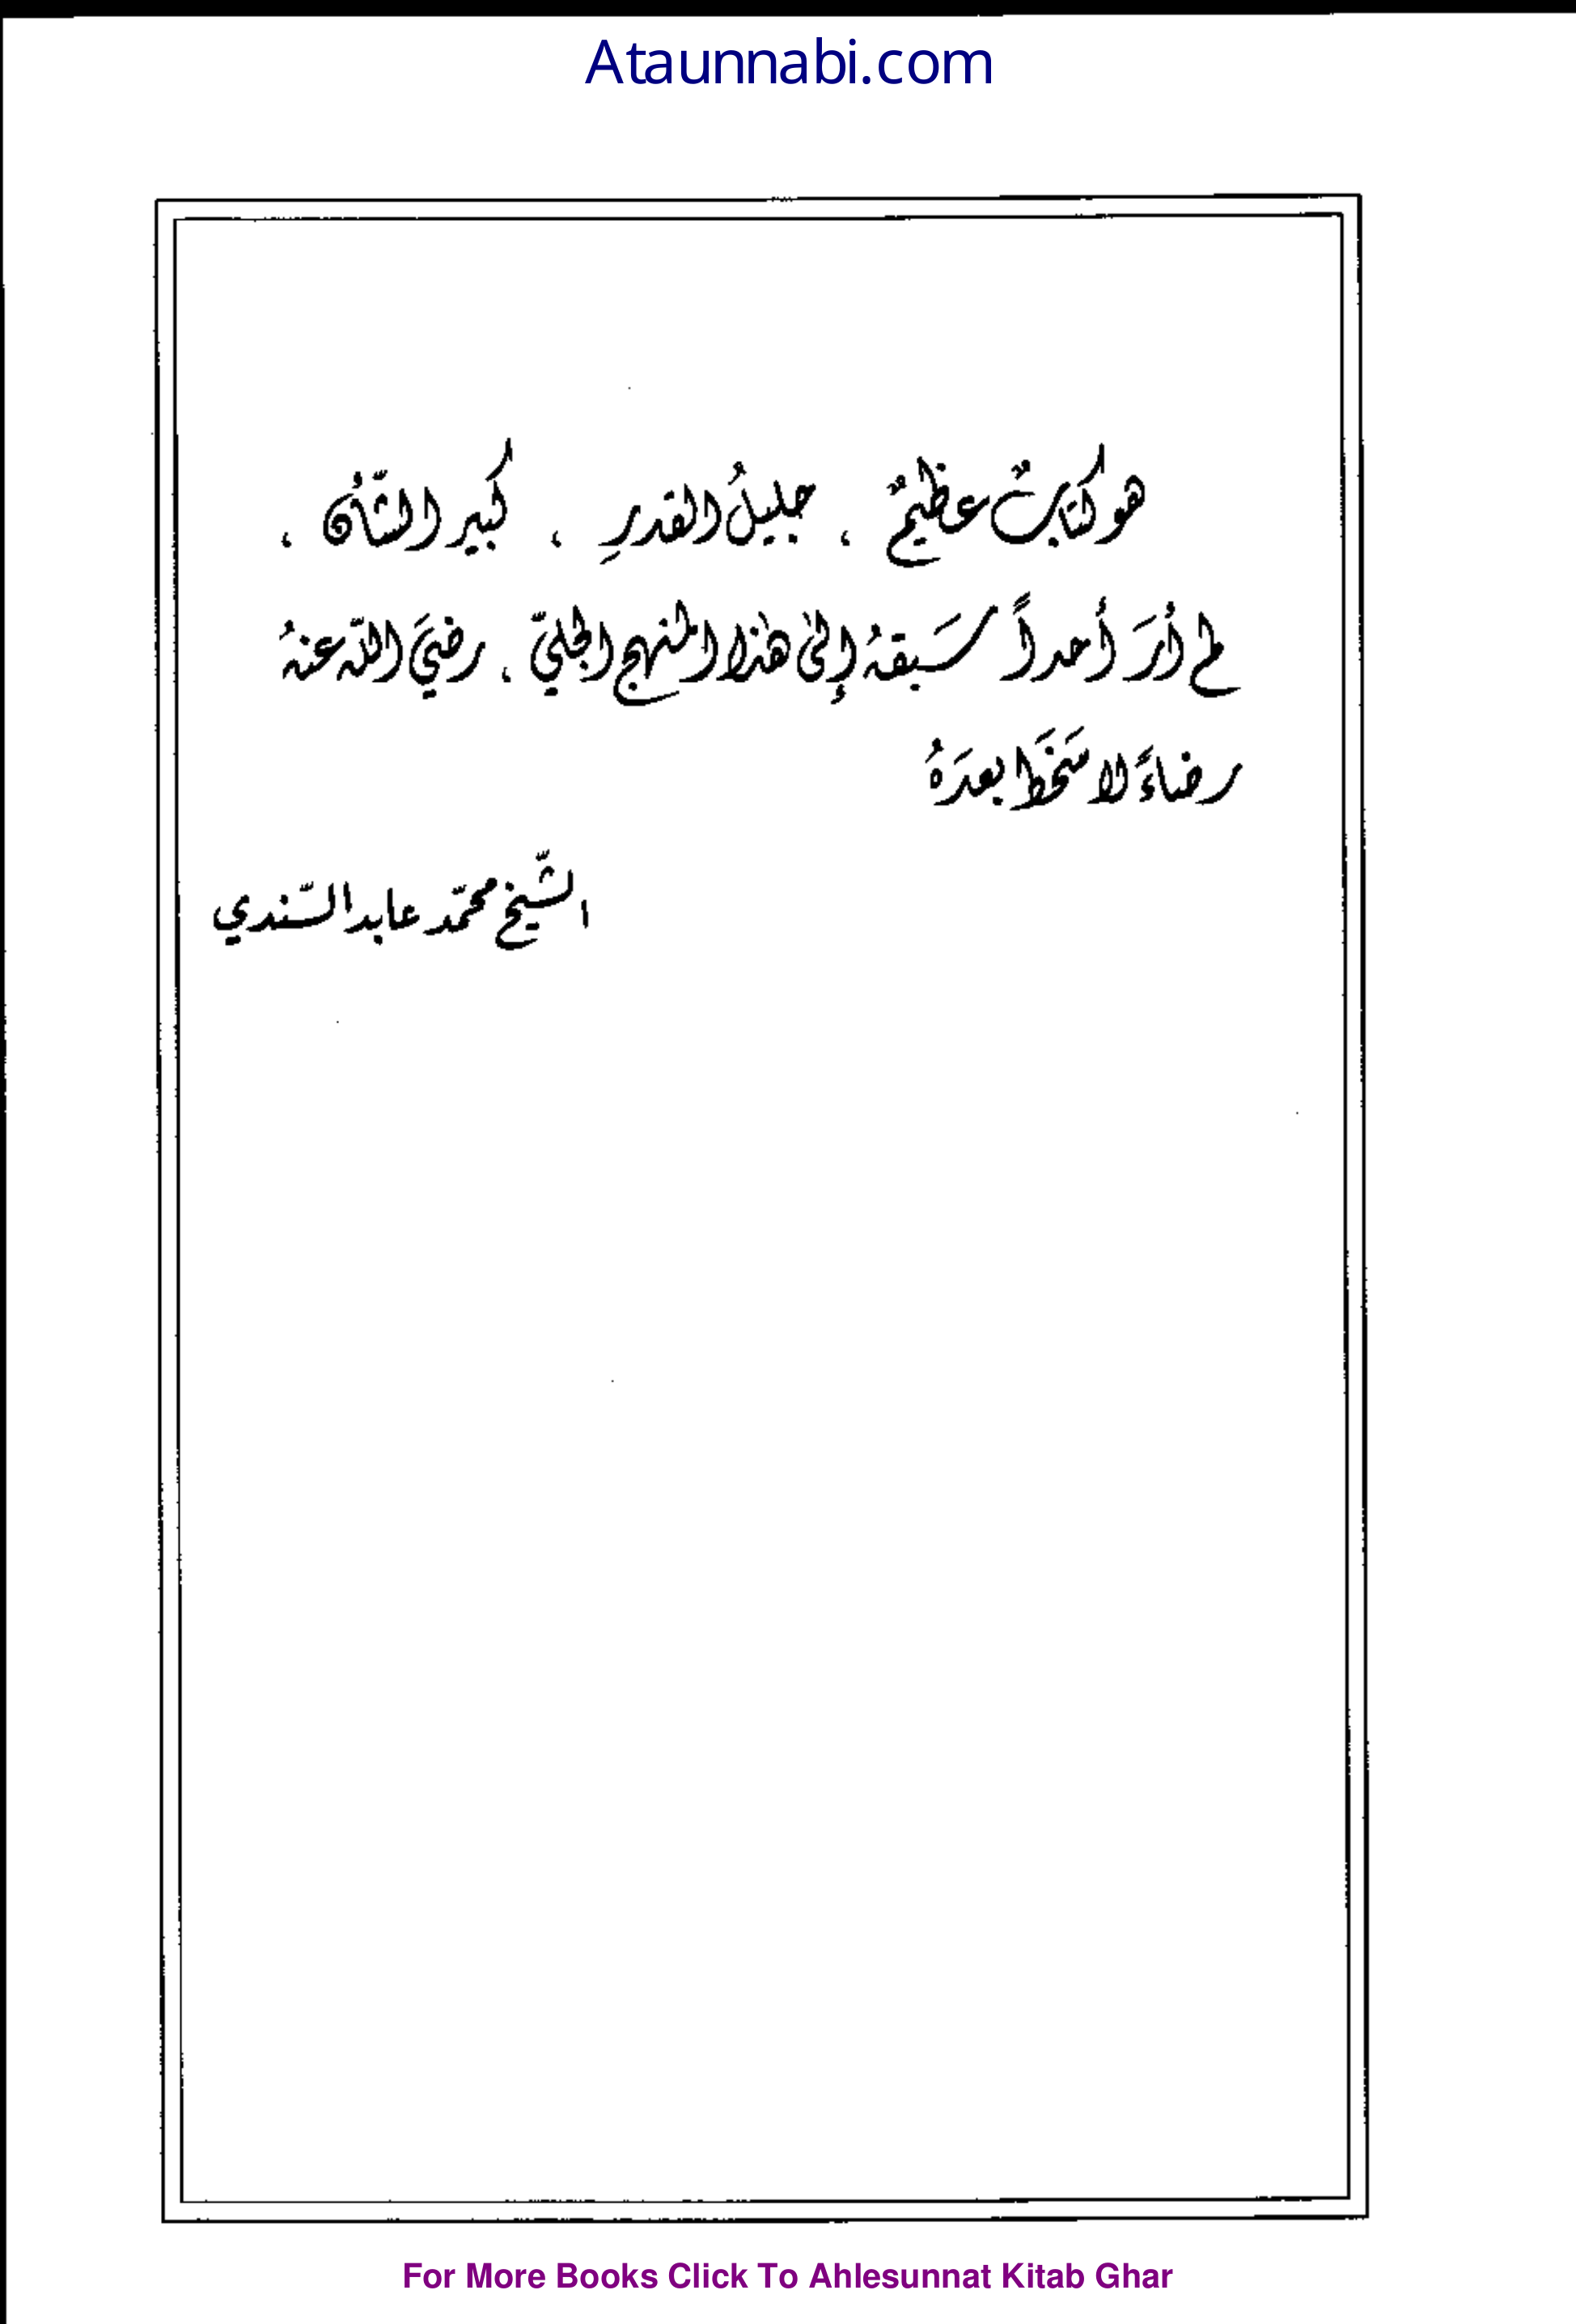 Ataunnabi.com
هو كتابٌ عظيمٌ ، جليلُ القدرِ ، كبير الشّأن ،
لم أرَ أحداً سَبقهُ إلى هٰذا المنهج الجليّ ، رضيَ اللّه عنهُ
رضاءً لا سَخَطَ بعدَهُ
الشّيخ محمّد عابد السّندي
For More Books Click To Ahlesunnat Kitab Ghar